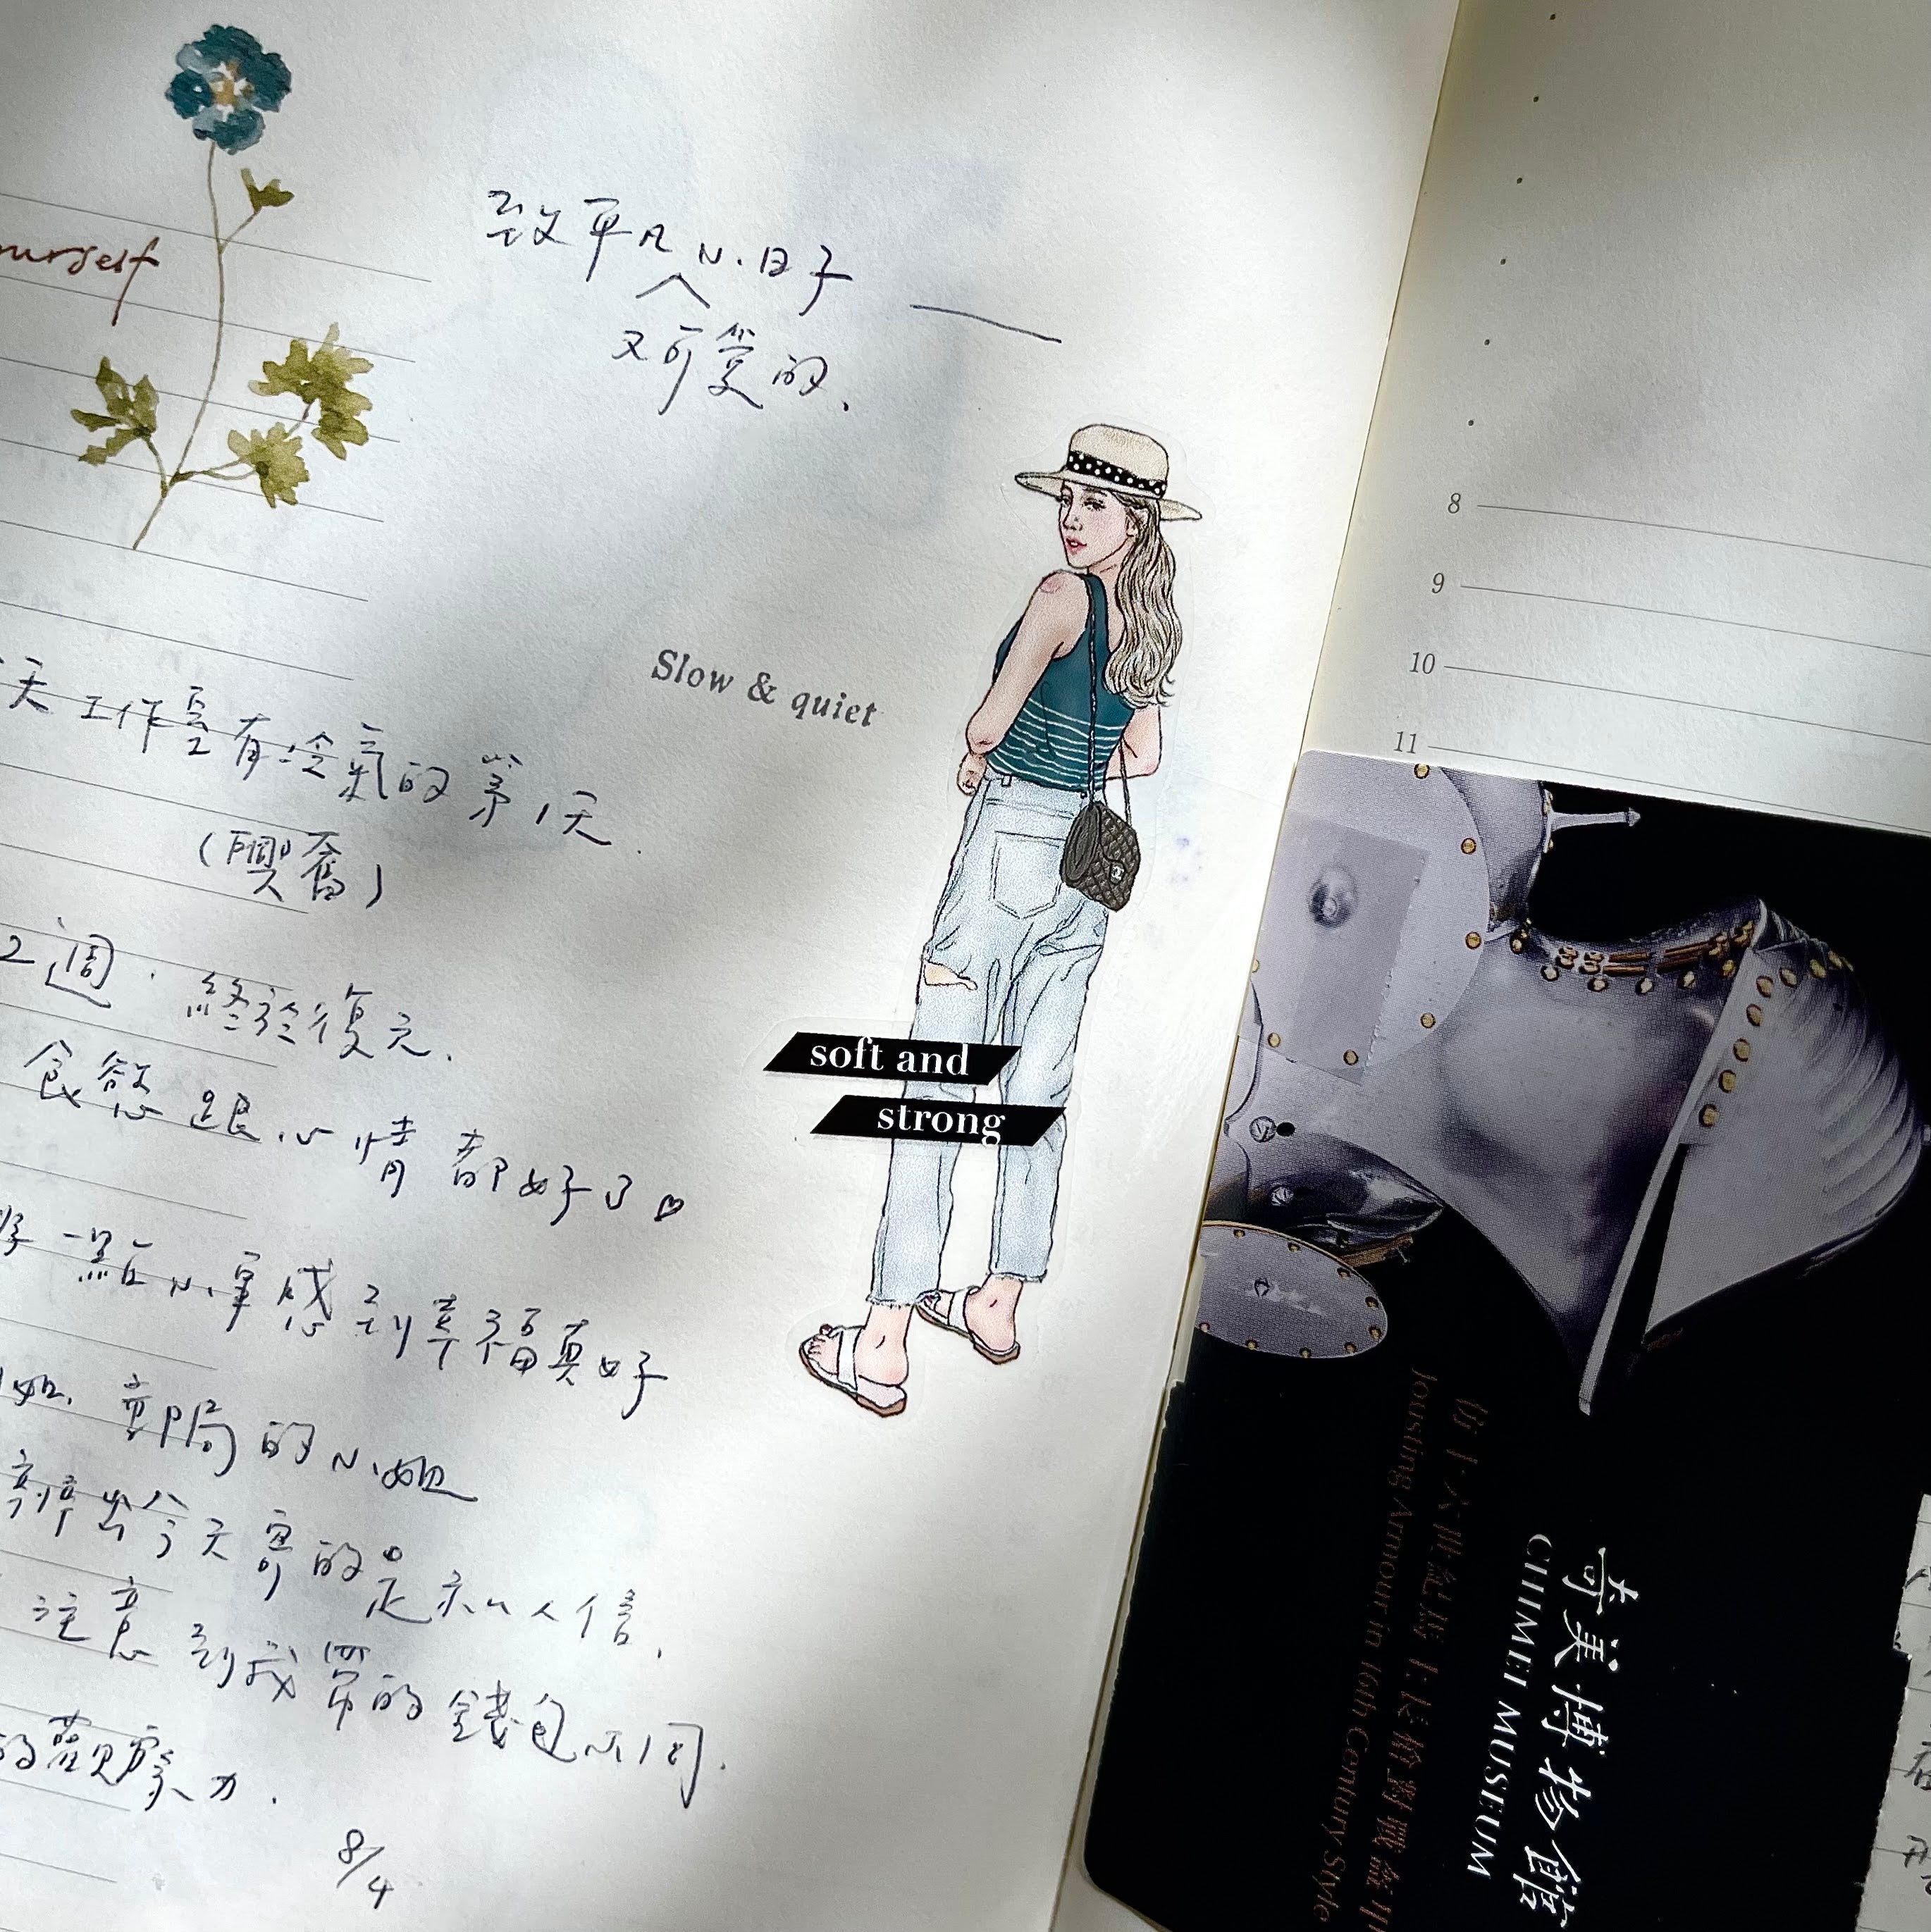 urself
致平凡小日子
又可愛的、
Slow & quiet
天工作室有冷氣的第1天.
(興奮)
2週. 終於復元.
食慾跟心情都好了♡
一點小事感到幸福真好
郵局的小姐
辨出今天寄的是私人信、
注意到我買的錢包不同.
的觀察力.
8/4
soft and
strong
8
9
10
11
仿十六世紀馬上長槍對戰盔甲
Jousting Armour in 16th Century Style
奇美博物館
CHIMEI MUSEUM